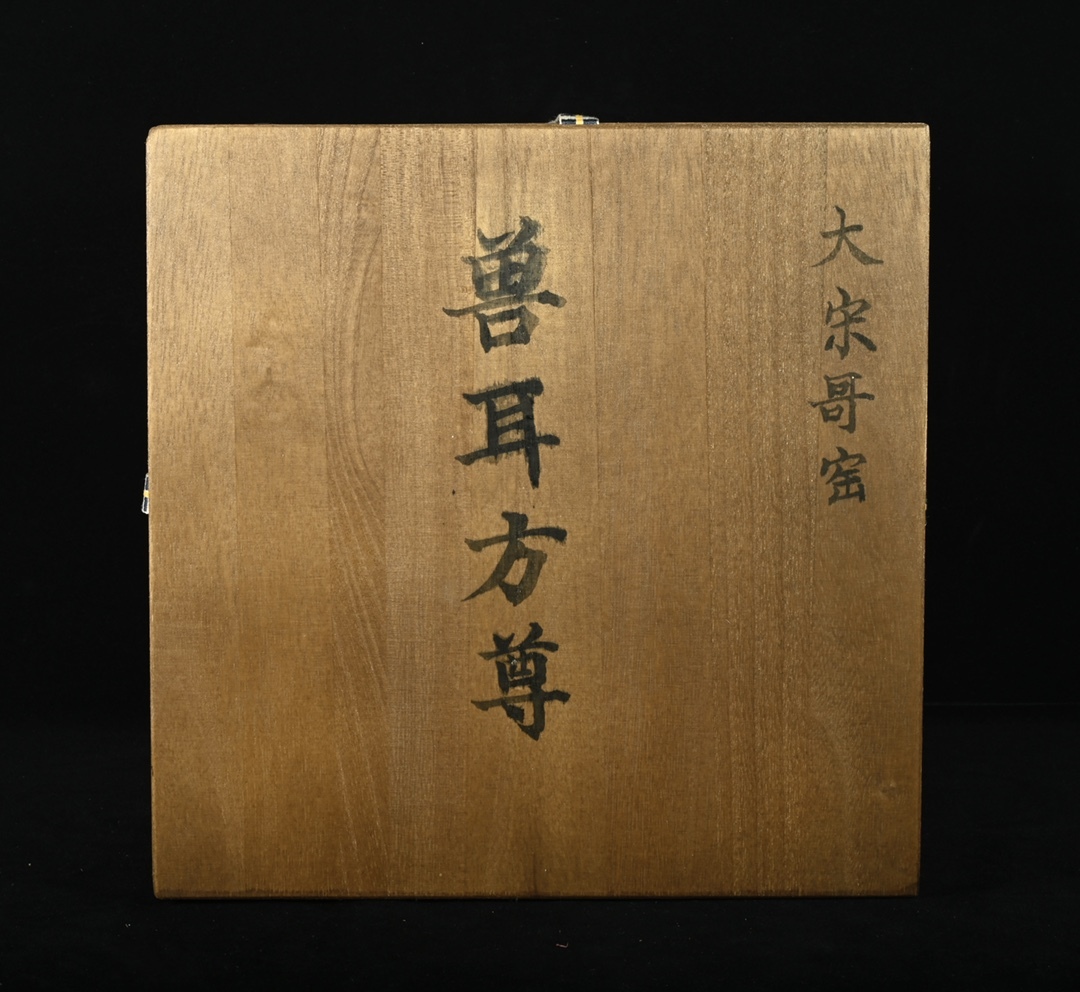 大宋哥窑
兽耳方尊